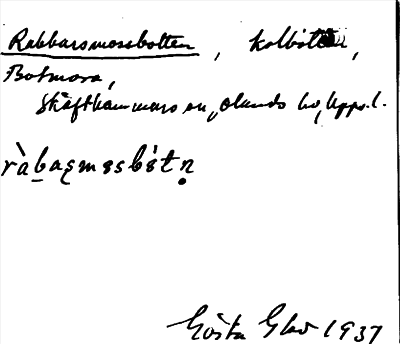 Rabbarsmossbotten, kolbotten,
Botmora,
Skäfthammars sn, Olands hd, Upps.l.
ràbaꞔmssbòtn̥
Gösta Glad 1937